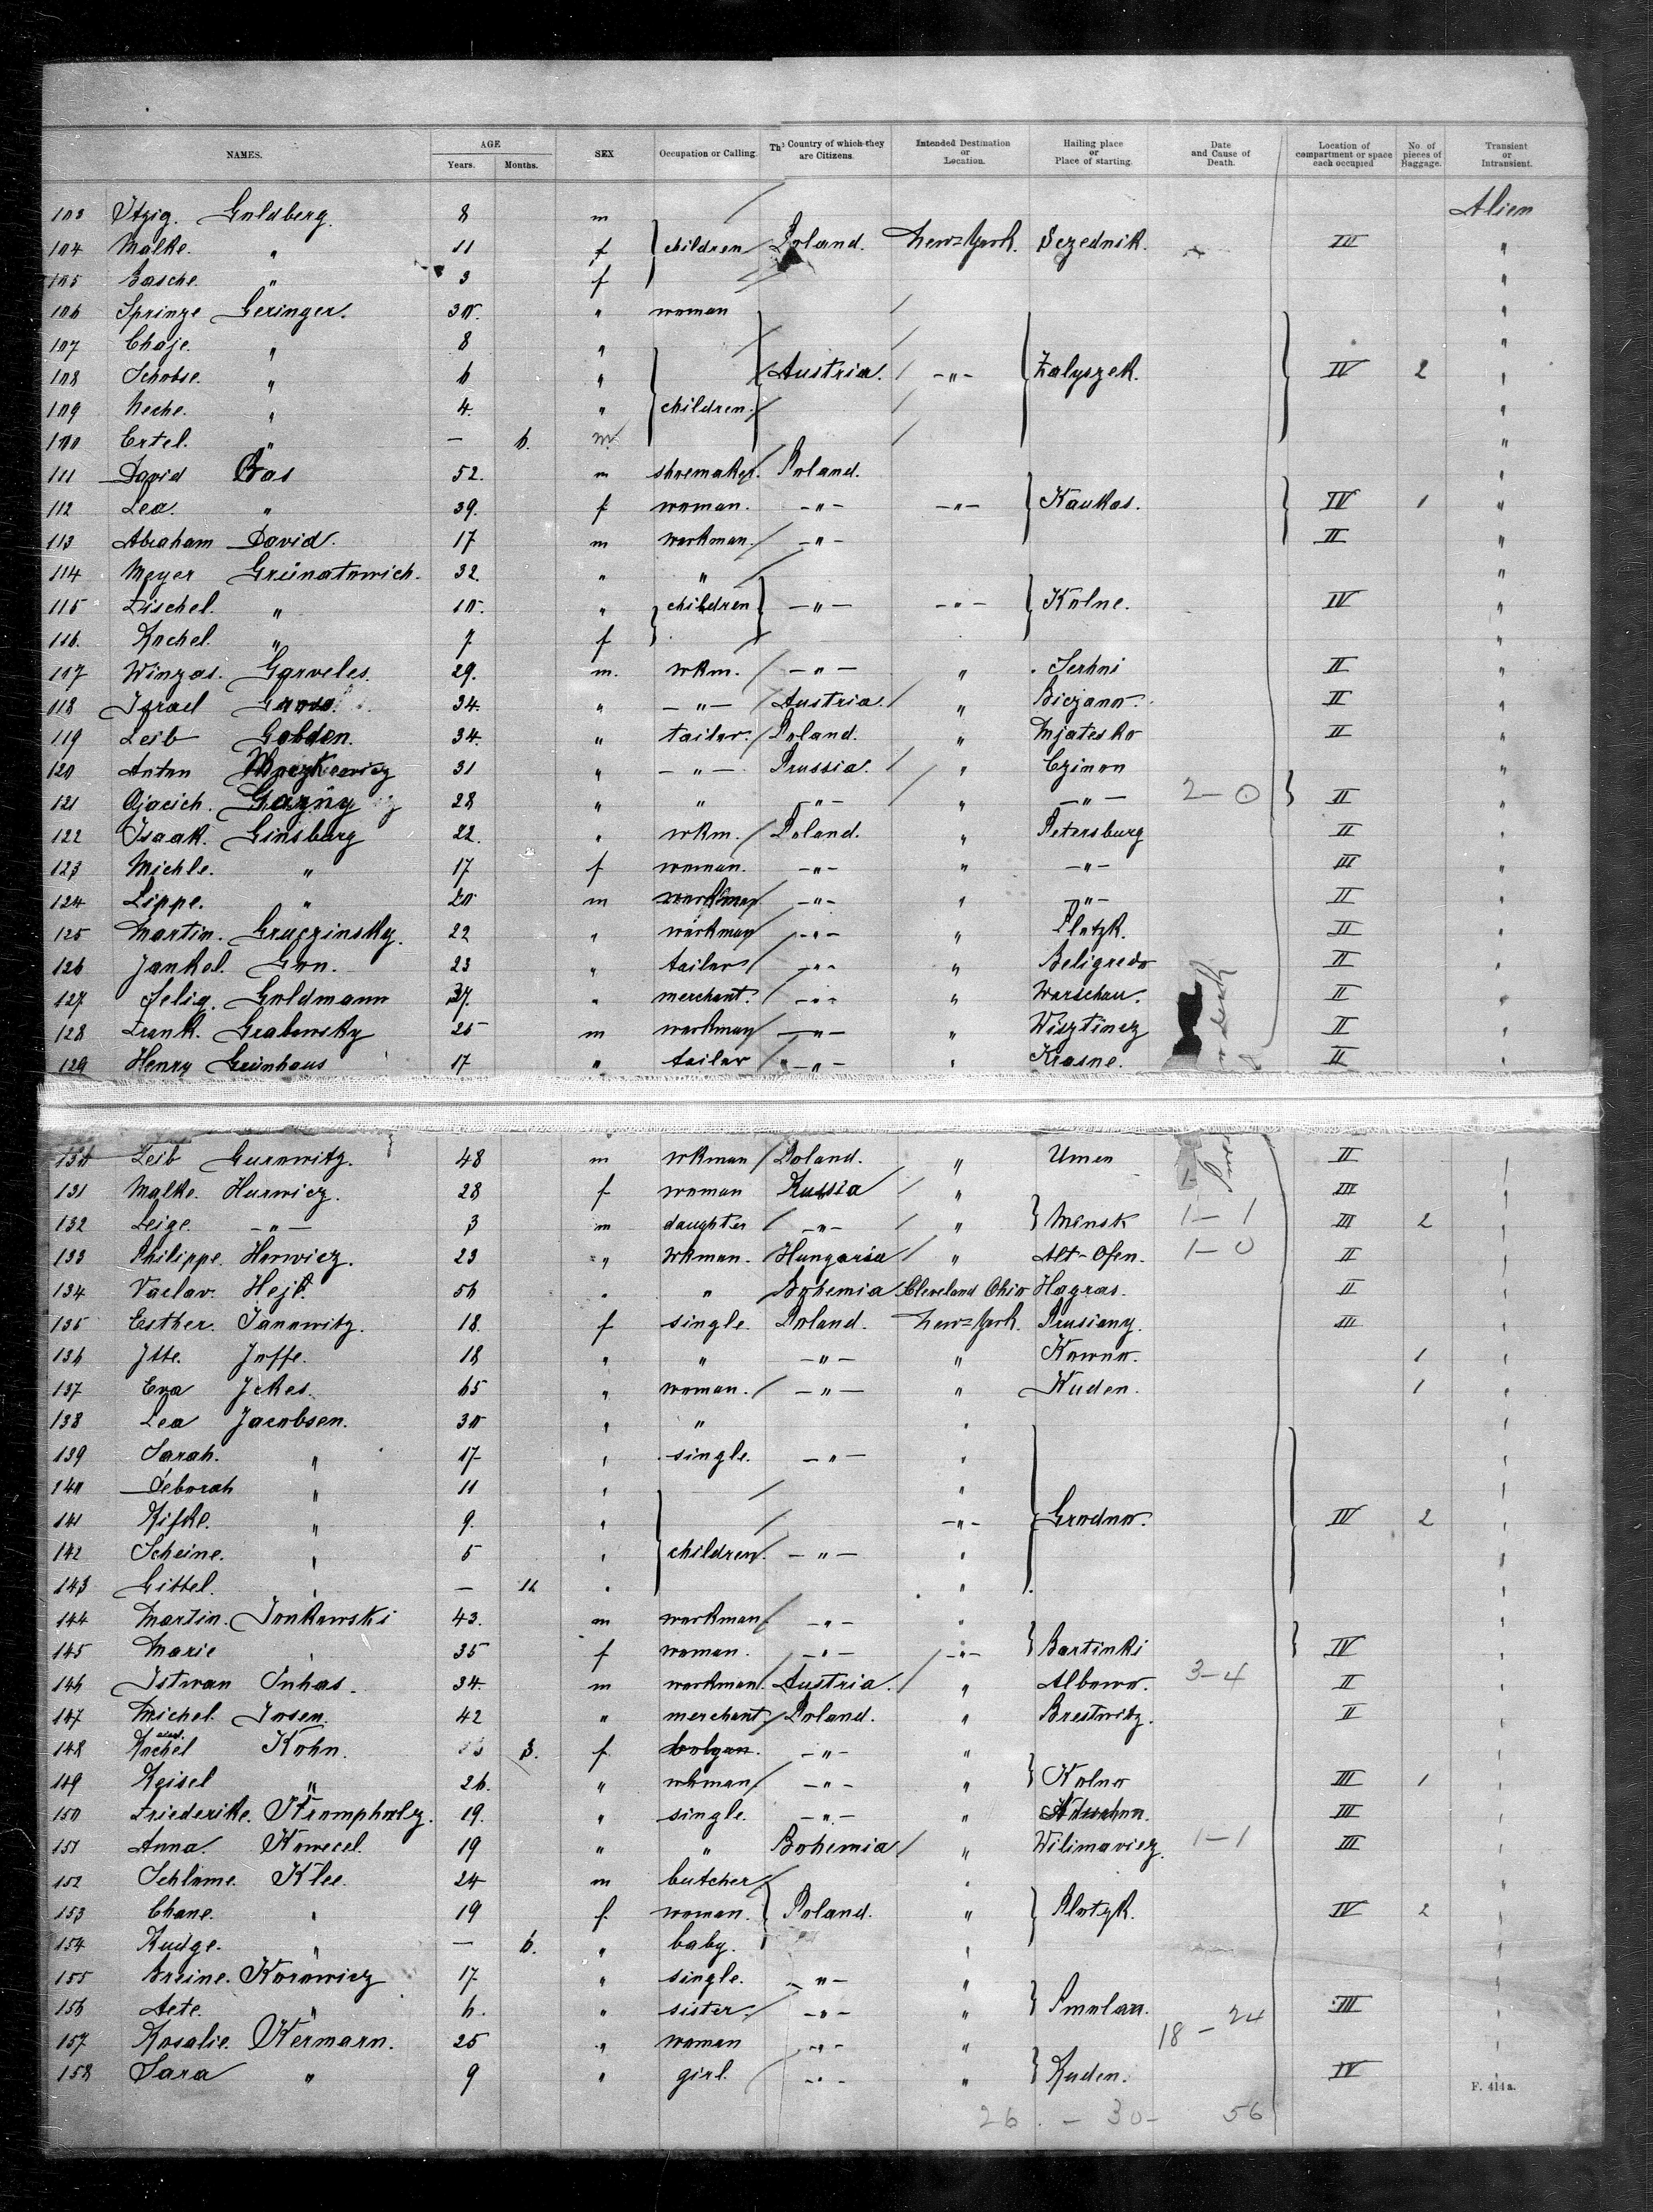 NAMES. AGE Years. Months. SEX Occupation or Calling. The Country of which they are Citizens. Intended Destination or Location. Hailing place or Place of starting. Date and Cause of Death. Location of compartment or space each occupied No. of pieces of Baggage. Transient or Intransient.
103 Itzig. Goldberg. 8 m Alien
104 Malke. " 11 f children Poland. New=York. Sczednik. III "
105 Basche. " 3 f "
106 Sprinze Geringer. 30. " woman "
107 Chaje. " 8 " "
108 Schobse. " 6 " Austria. -"- Zalyszek. IV 2 "
109 Neche. " 4. " children. "
110 Ertel. " — 6. m. "
111 David Bas 52. m shoemaker. Poland. "
112 Lea. " 39. f woman. -"- -"- Kaukas. IV 1 "
113 Abraham David. 17 m workman. -"- II "
114 Meyer Grünatowich. 32. " " "
115 Fischel. " 10. " children -"- -"- Kolne. IV "
116. Rochel. " 7 f "
117 Winzas. Garveles. 29. m. wkm. -"- " Serhni II "
118 Israel 34. " -"- Austria. " Biezano. II "
119 Leib Golden. 34. " tailor. Poland. " Mjatesko II "
120 Anton 31 " -"- Prussia. " Czimon "
121 Ojacich. Gazny 28 " " -"- " -"- 2-0 II "
122 Isaak. Ginsburg 22. " wkm. Poland. " Petersburg II "
123 Michle. " 17 f woman. -"- " -"- III "
124 Lippe. " 20 m workman -"- " -"- II "
125 Martin. Gruczinsky. 22 " workman -"- " Plotzk. II "
126 Jankel. Gon. 23 " tailor -"- " Beligredo II "
127 Selig. Goldmann 37. " merchant. -"- " Warschau. II "
128 Frank. Grabowsky 25 m workman -"- " Wisztinez II "
129 Henry Grünhaus 17 " tailor -"- " Krasne. II "
130 Leib Gurowitz. 48 m wkman Poland. " Umen II "
131 Malke. Hurwicz. 28 f woman Russia " III "
132 Feige -"- 3 m daughter -"- " Minsk 1-1 III 2 "
133 Philippe. Horwicz. 23 " wkman. Hungaria " Alt-Ofen. 1-0 II "
134 Vaclav. Hejl. 56 " " Bohemia Cleveland Ohio Hagras. II "
135 Esther. Janowitz. 18. f single. Poland. New=York. Prusiany. III "
136 Itte. Joffe. 18 " " -"- " Kowno. 1 "
137 Eva Jckes. 65 " woman. -"- " Kuden. 1 "
138 Lea Jacobsen. 30 " " " "
139 Sarah. " 17 " single. -"- " "
140 Deborah " 11 " " "
141 Rifke. " 9. " -"- Grodno. IV 2 "
142 Scheine. " 5 " children. -"- " "
143 Gittel. " — 11 " " "
144 Martin. Jonkowski 43. m workman -"- " "
145 Marie " 35 f woman. -"- -"- Bartinki IV "
146 Istwan Juhas. 34. m workman. Austria. " Albowo. 3-4 II "
147 Michel. Josen. 42 " merchant. Poland. " Brestwitz. II "
148 Rochel Kohn. 3. f -"- " "
149 Reisel " 26. " wkman -"- " Kolno III 1 "
150 Friederike. Kromphalz. 19. " single. -"- " III "
151 Anna. Kowecel. 19 " " Bohemia " Wilimavicz. 1-1 III "
152 Schlome. Klee. 24 m butcher " "
153 Chane. " 19 f woman. Poland. " Plotzk. IV 2 "
154 Rudge. " — 6. " baby. " "
155 Breine. Korowicz 17 " single. -"- " "
156 Aete. " 6. " sister. -"- " Smolan. III "
157 Rosalie. Kermann. 25 " woman -"- " 18-24 "
158 Sara " 9 " girl. -"- " Ruden. IV "
F. 414a.
26 - 30 - 56